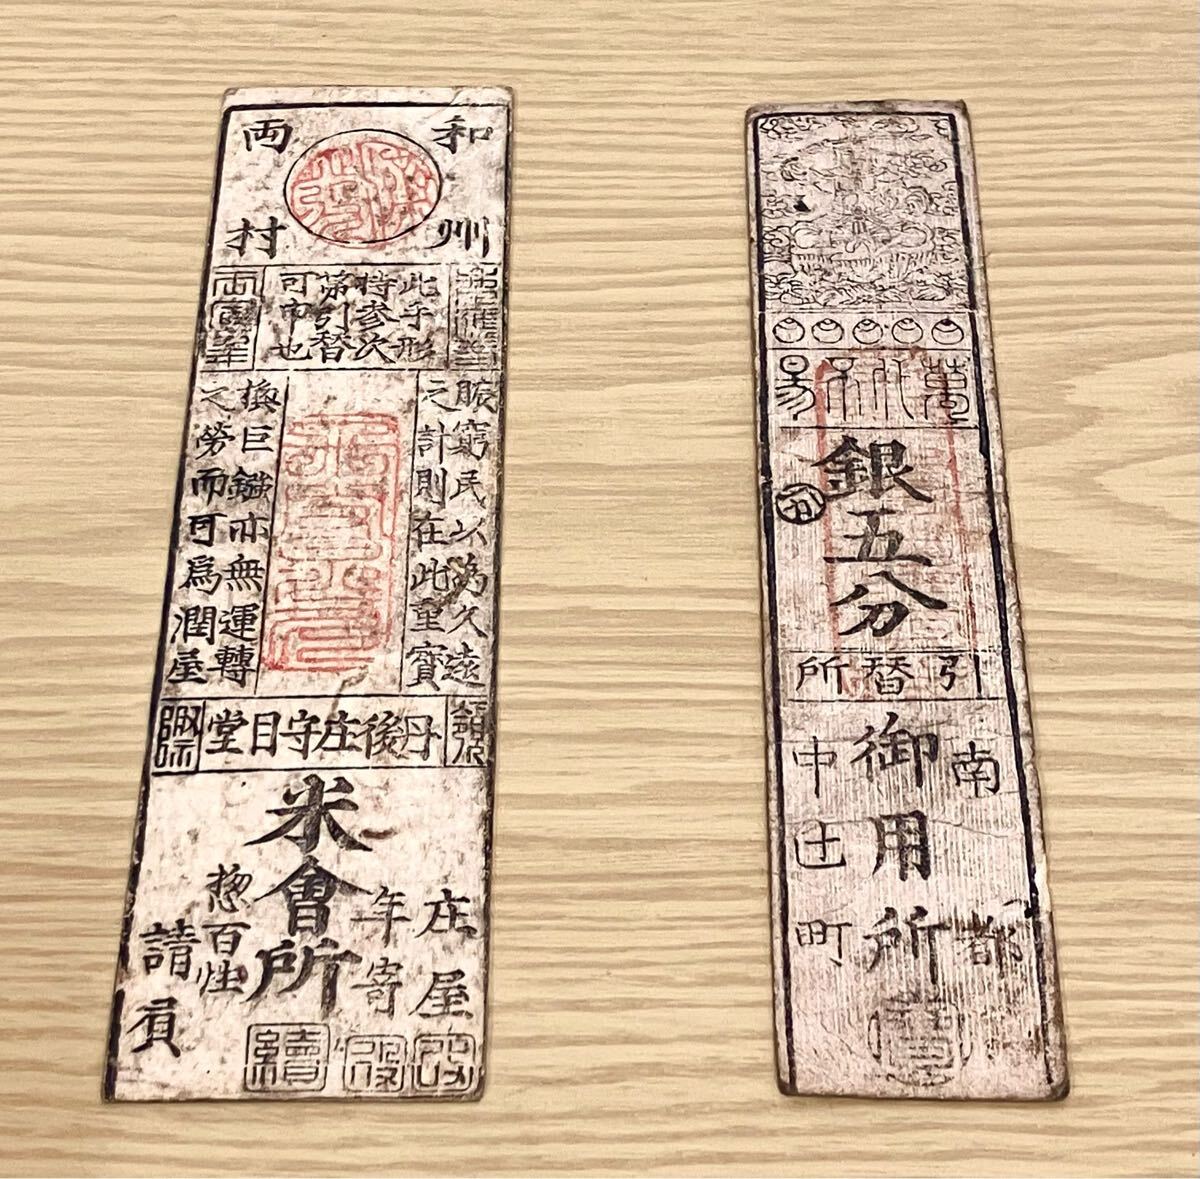 和州
両村
此手形
持参次
第引替
可申也
賑窮民以為久遠
之計則在此重寳
換巨鏹亦無運轉
之勞而可爲潤屋
丹後庄守目堂
庄屋
年寄
米會所
惣百性
請負
續
萬代不易
銀五分
引替所
南都
御用所
中辻町